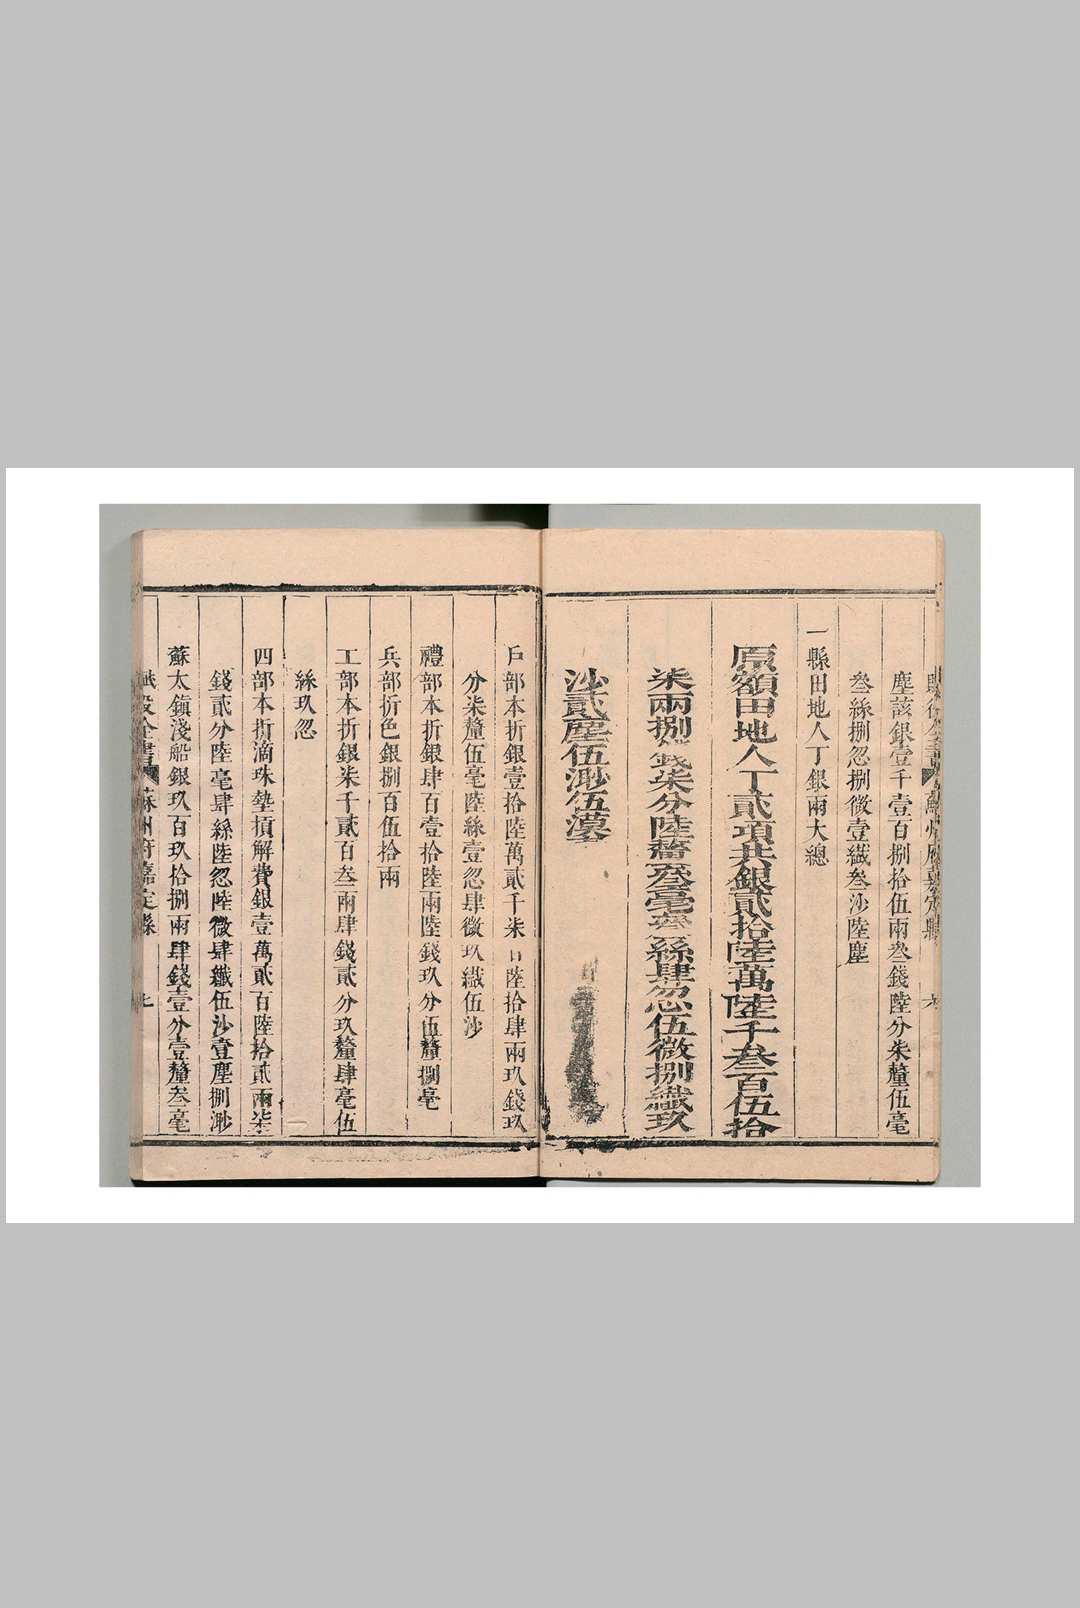 塵該銀壹千壹百捌拾伍兩叁錢陸分柒釐伍毫
叁絲捌忽捌微壹纖叁沙陸塵
一縣田地人丁銀兩大總
原額田地人丁貳項共銀貳拾陸萬陸千叁百伍拾
柒兩捌錢柒分陸釐叁毫絲肆忽伍微捌纖玖
沙貳塵伍渺伍漠
戶部本折銀壹拾陸萬貳千柒百陸拾肆兩玖錢玖
分柒釐伍毫陸絲壹忽肆微玖纖伍沙
禮部本折銀肆百壹拾陸兩陸錢玖分伍釐捌毫
兵部折色銀捌百伍拾兩
工部本折銀柒千貳百叁兩肆錢貳分玖釐肆毫伍
絲玖忽
四部本折滴珠墊損解費銀壹萬貳百陸拾貳兩柒
錢貳分陸毫肆絲陸忽陸微肆纖伍沙壹塵捌渺
蘇太鎮淺船銀玖百玖拾捌兩肆錢壹分壹釐叁毫
賦役全書 蘇州府嘉定縣 七